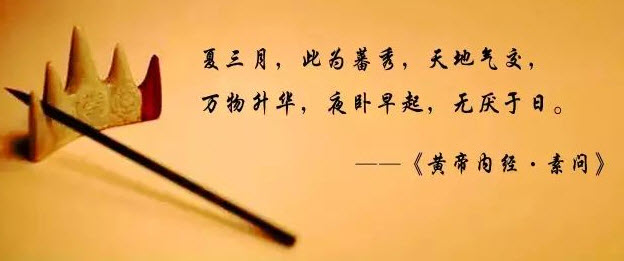 夏三月，此为蕃秀，天地气交，
万物升华，夜卧早起，无厌于日。
——《黄帝内经·素问》